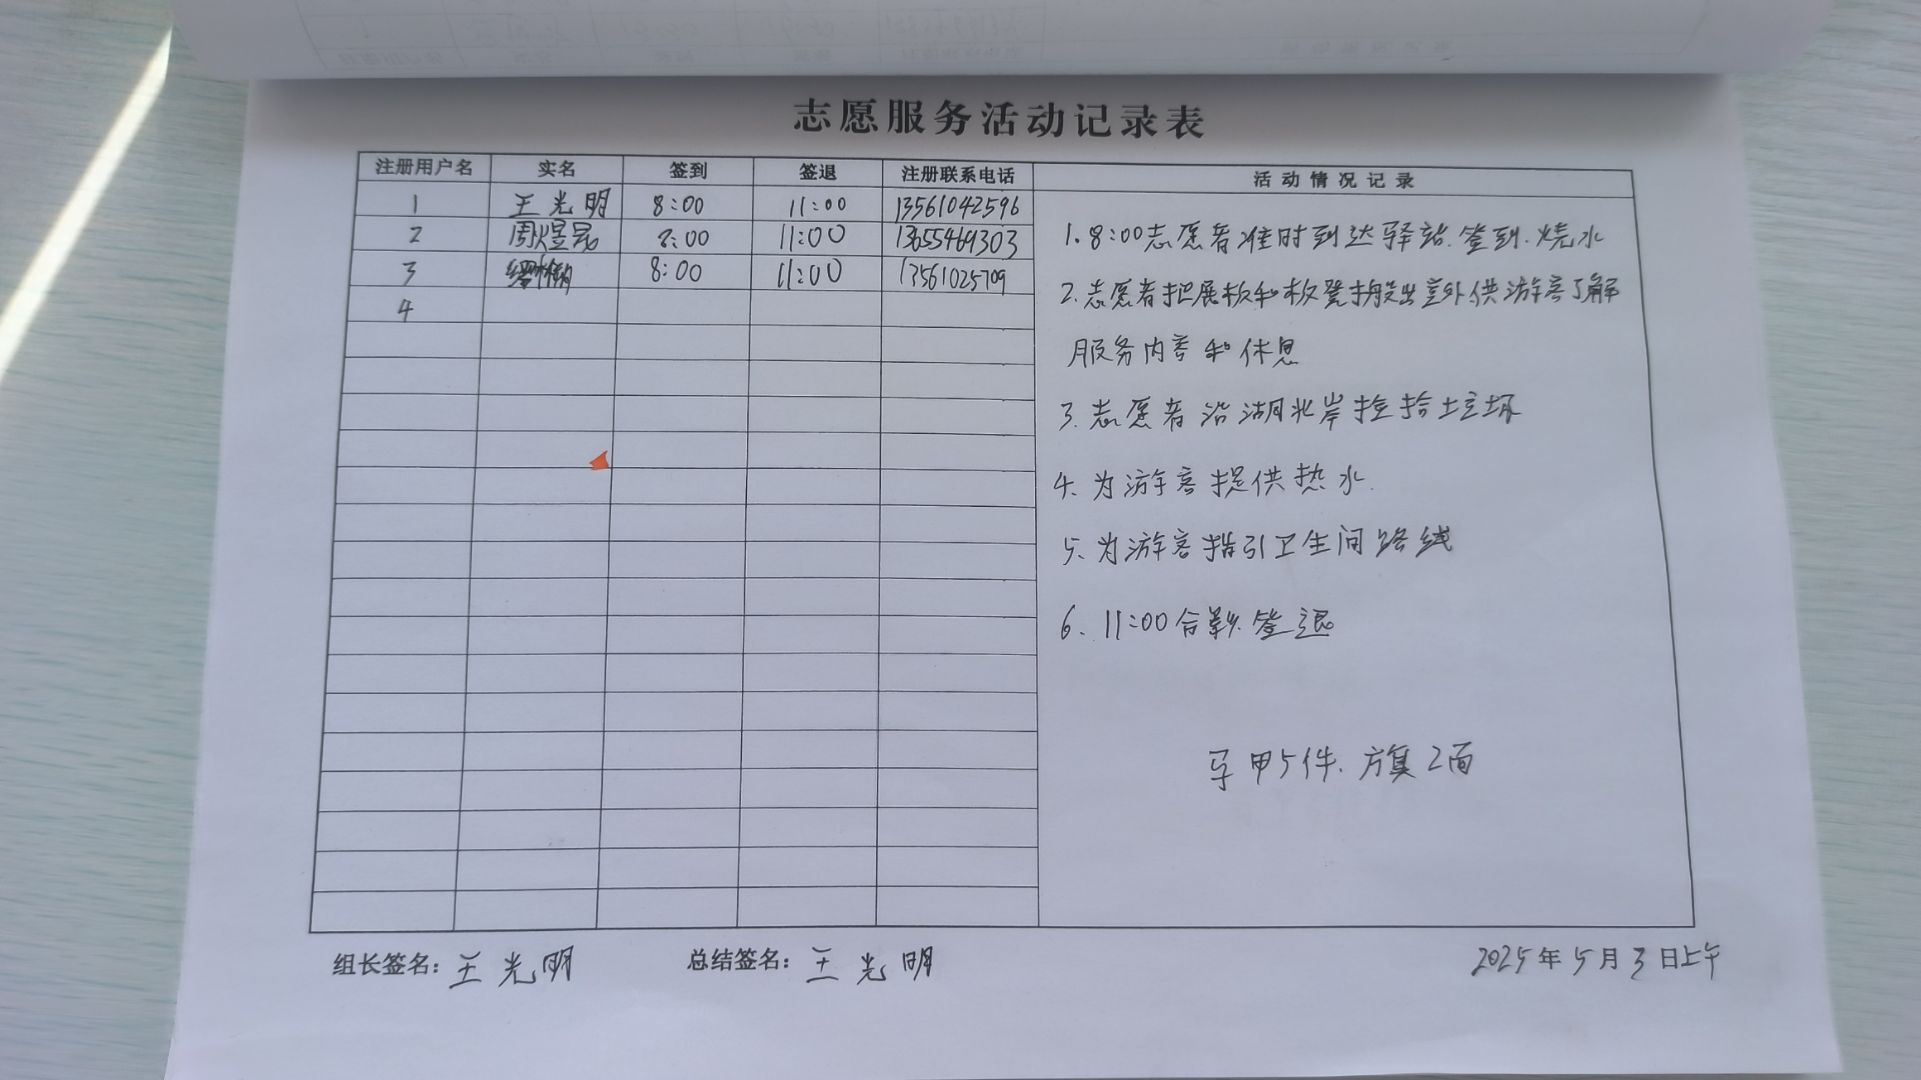 志愿服务活动记录表
注册用户名 实名 签到 签退 注册联系电话 活动情况记录
1 王光明 8:00 11:00 13561042596
2 周煜昆 8:00 11:00 13655469303
3 8:00 11:00 13561025709
4
1.8:00志愿者准时到达驿站.签到.烧水
2.志愿者把展板和板凳搬出室外供游客了解
服务内容和休息
3.志愿者沿湖北岸捡拾垃圾
4.为游客提供热水.
5、为游客指引卫生间路线
6、11:00合影.签退
马甲5件.旗2面
组长签名：王光明 总结签名：王光明 2025年5月3日上午